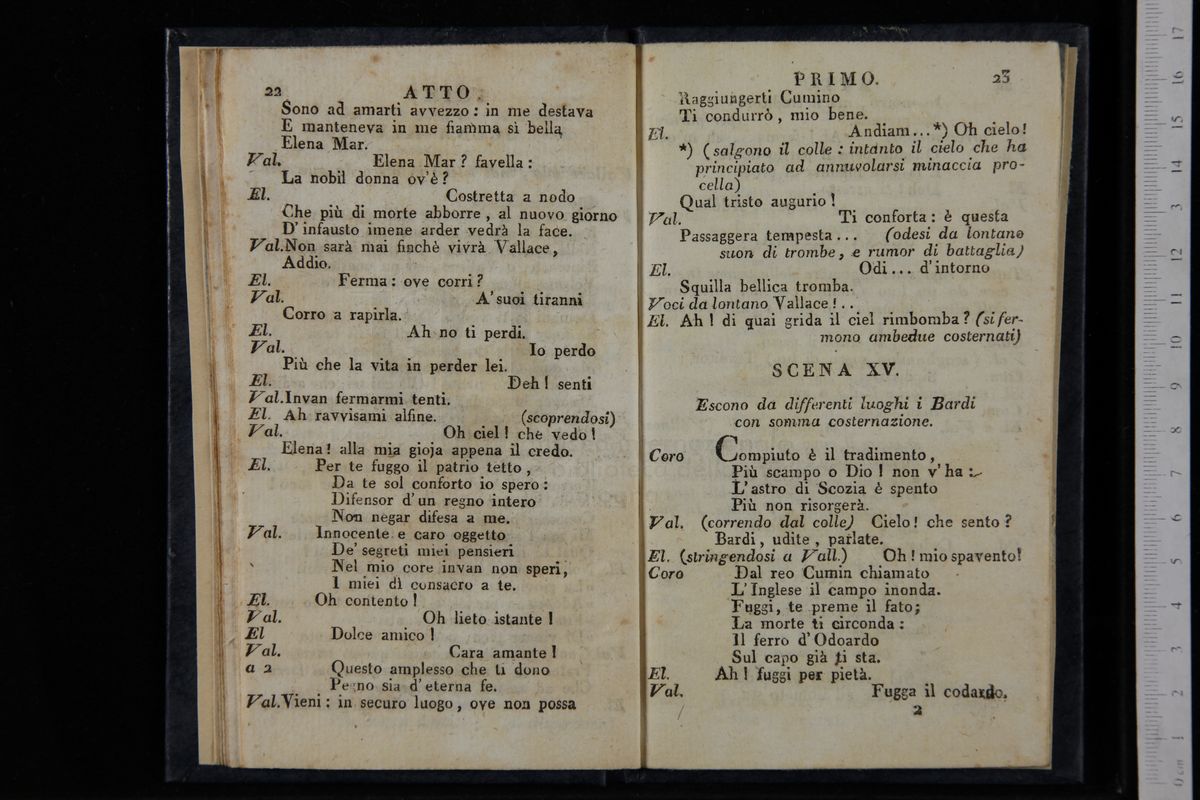 22 ATTO
Sono ad amarti avvezzo : in me destava
E manteneva in me fiamma sì bella
Elena Mar.
Val. Elena Mar ? favella :
La nobil donna ov'è ?
El. Costretta a nodo
Che più di morte abborre , al nuovo giorno
D' infausto imene arder vedrà la face.
Val. Non sarà mai finchè vivrà Vallace ,
Addio.
El. Ferma : ove corri ?
Val. A' suoi tiranni
Corro a rapirla.
El. Ah no ti perdi.
Val. Io perdo
Più che la vita in perder lei.
El. Deh ! senti
Val. Invan fermarmi tenti.
El. Ah ravvisami alfine. (scoprendosi)
Val. Oh ciel ! che vedo !
Elena ! alla mia gioja appena il credo.
El. Per te fuggo il patrio tetto ,
Da te sol conforto io spero :
Difensor d' un regno intero
Non negar difesa a me.
Val. Innocente e caro oggetto
De' segreti miei pensieri
Nel mio core invan non speri,
I miei dì consacro a te.
El. Oh contento !
Val. Oh lieto istante !
El Dolce amico !
Val. Cara amante !
a 2 Questo amplesso che ti dono
Pegno sia d' eterna fe.
Val. Vieni : in securo luogo , ove non possa
PRIMO. 23
Raggiungerti Cumino
Ti condurrò , mio bene.
El. Andiam ... *) Oh cielo !
*) (salgono il colle : intanto il cielo che ha
principiato ad annuvolarsi minaccia pro-
cella)
Qual tristo augurio !
Val. Ti conforta : è questa
Passaggera tempesta ... (odesi da lontano
suon di trombe , e rumor di battaglia)
El. Odi ... d' intorno
Squilla bellica tromba.
Voci da lontano Vallace ! ..
El. Ah ! di quai grida il ciel rimbomba ? (si fer-
mono ambedue costernati)
SCENA XV.
Escono da differenti luoghi i Bardi
con somma costernazione.
Coro Compiuto è il tradimento ,
Più scampo o Dio ! non v' ha :
L' astro di Scozia è spento
Più non risorgerà.
Val. (correndo dal colle) Cielo ! che sento ?
Bardi , udite , parlate.
El. (stringendosi a Vall.) Oh ! mio spavento !
Coro Dal reo Cumin chiamato
L' Inglese il campo inonda.
Fuggi, te preme il fato ;
La morte ti circonda :
Il ferro d' Odoardo
Sul capo già ti sta.
El. Ah ! fuggi per pietà.
Val. Fugga il codardo.
2
0 cm 1 2 3 4 5 6 7 8 9 10 11 12 13 14 15 16 17